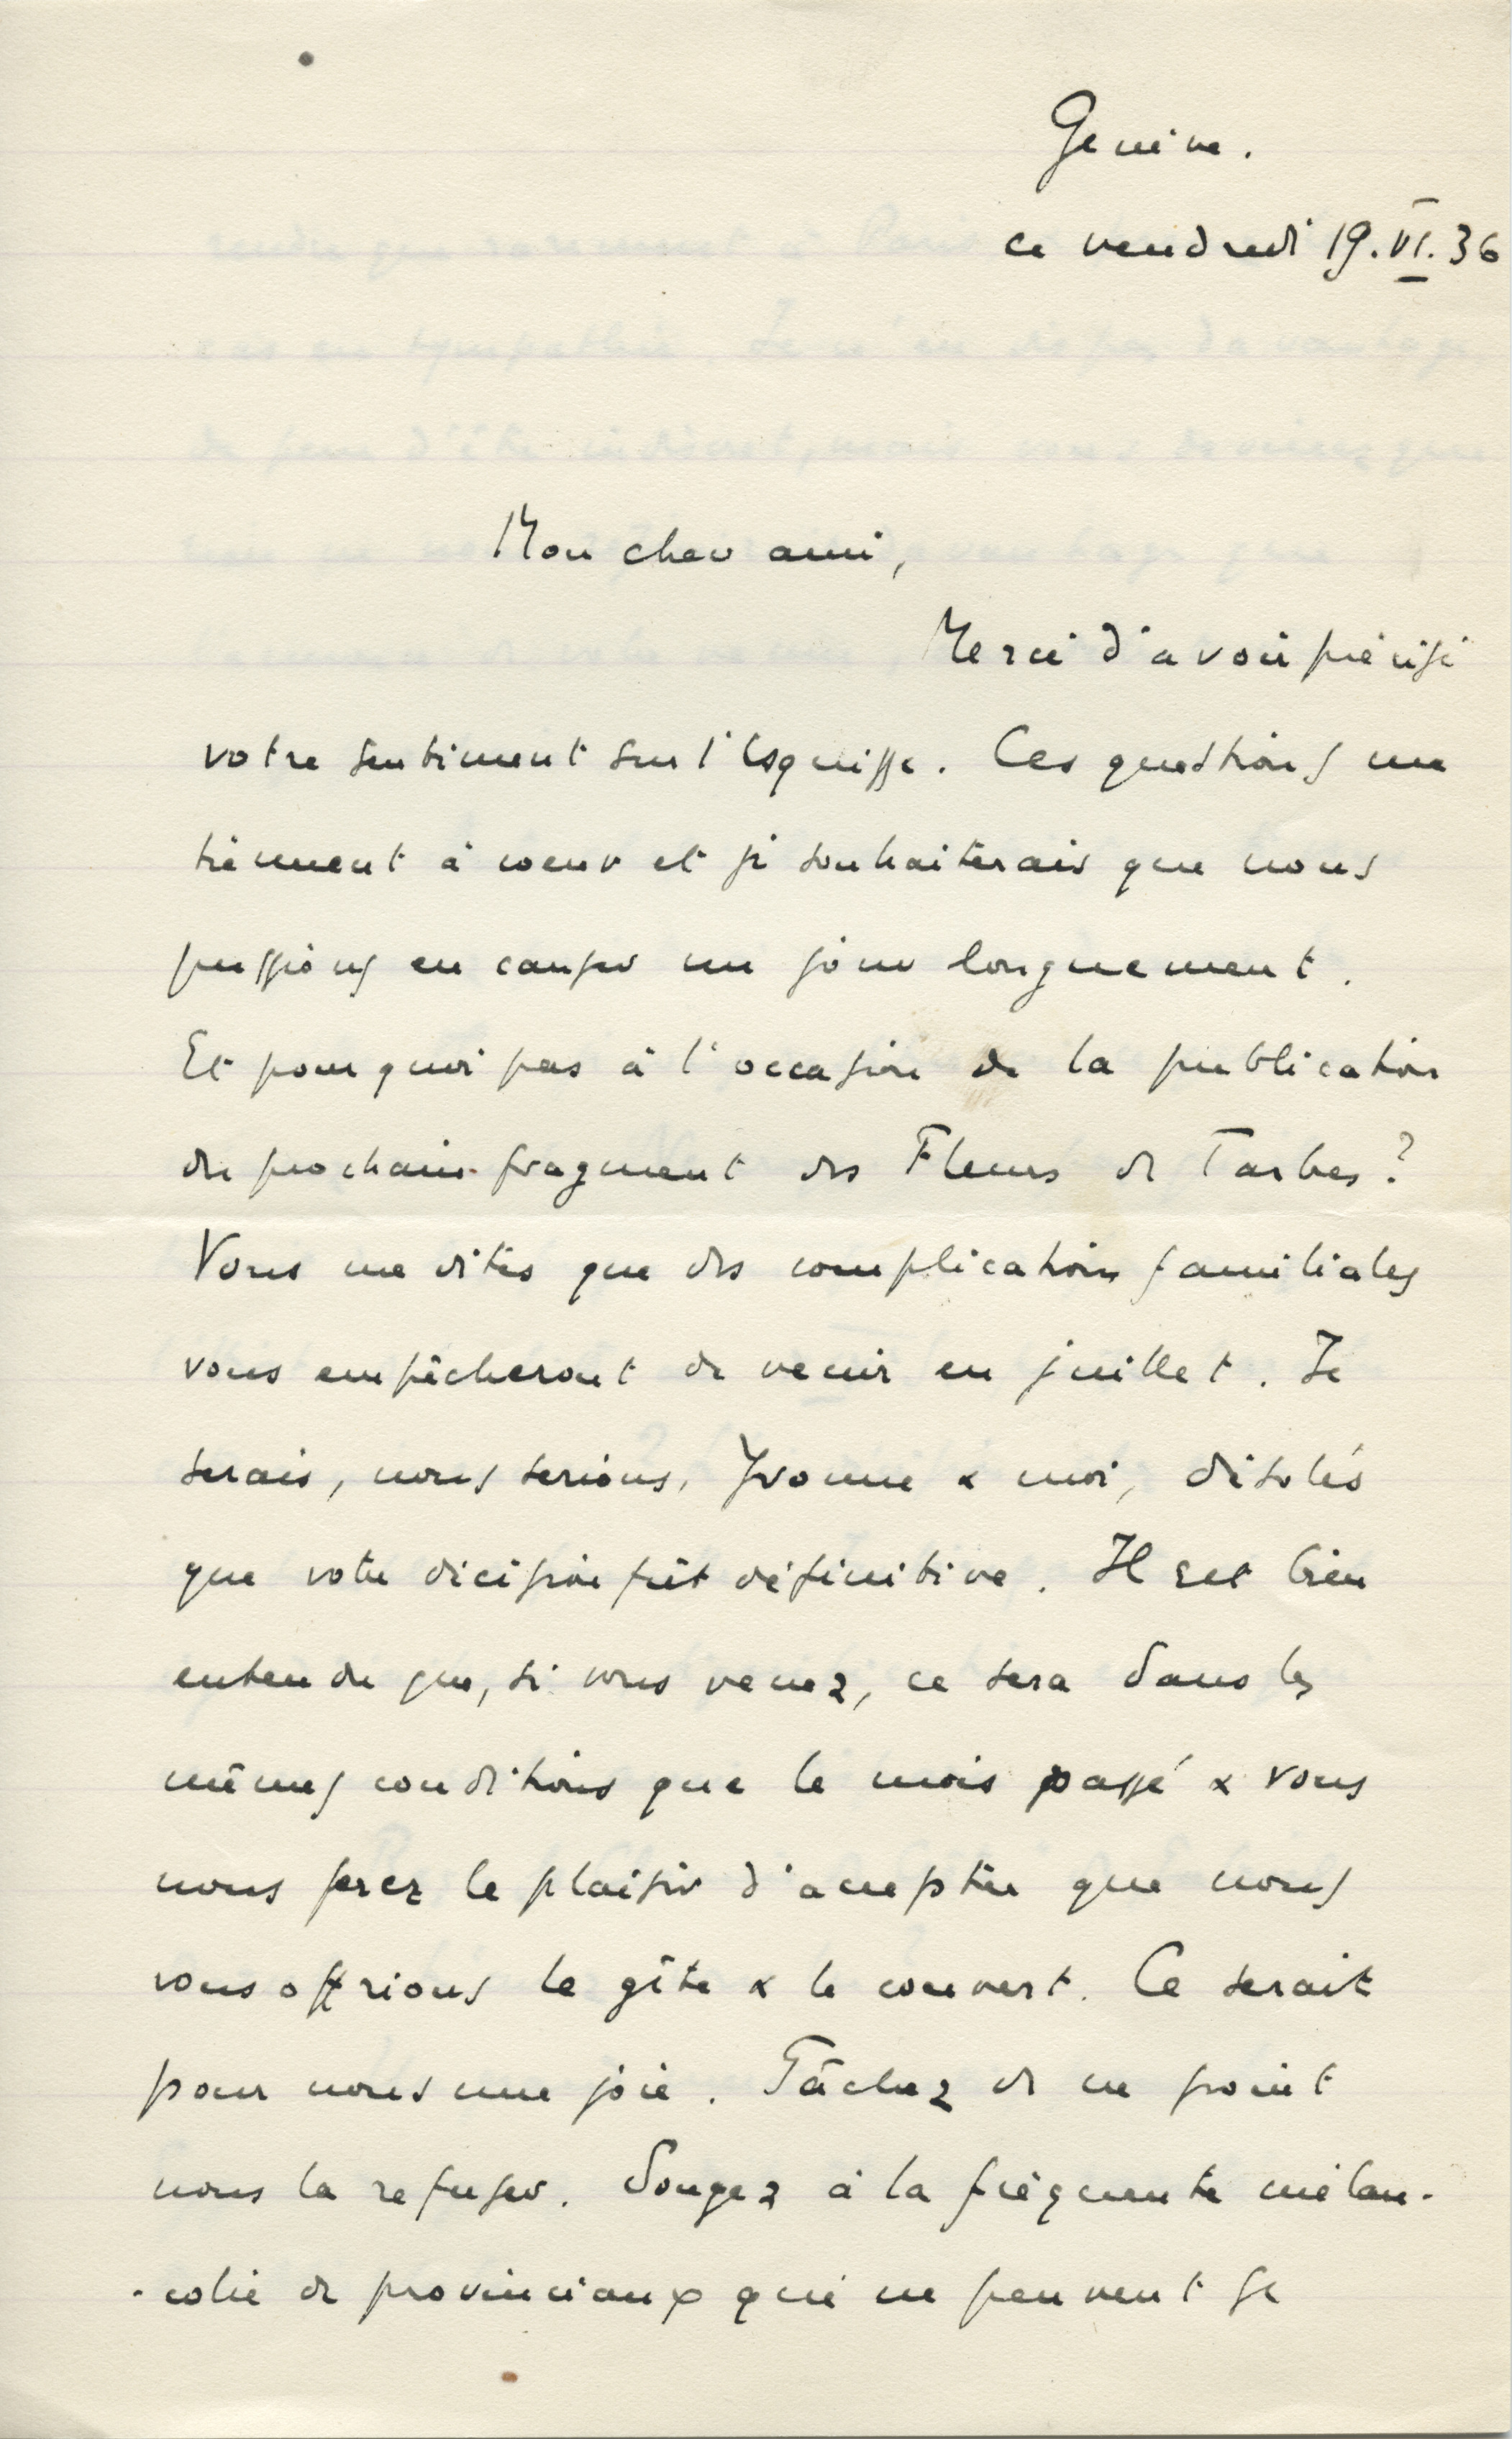 Genève.
ce vendredi 19.VI.36
Mon cher ami,
Merci d'avoir précisé
votre sentiment sur l'Esquisse. Ces questions me
tiennent à coeur et je souhaiterais que nous
pussions en causer un jour longuement.
Et pourquoi pas à l'occasion de la publication
du prochain fragment des Fleurs de Tarbes?
Vous me dites que des complications familiales
vous empêcheront de venir en juillet. Je
serais, nous serions, Yvonne & moi, désolés
que votre décision fût définitive. Il est bien
entendu que, si vous venez, ce sera dans les
mêmes conditions que le mois passé & vous
nous ferez le plaisir d'accepter que nous
vous offrions le gîte & le couvert. Ce serait
pour nous une joie. Tâchez de ne point
nous la refuser. Songez à la fréquente mélan-
-colie de provinciaux qui ne peuvent se